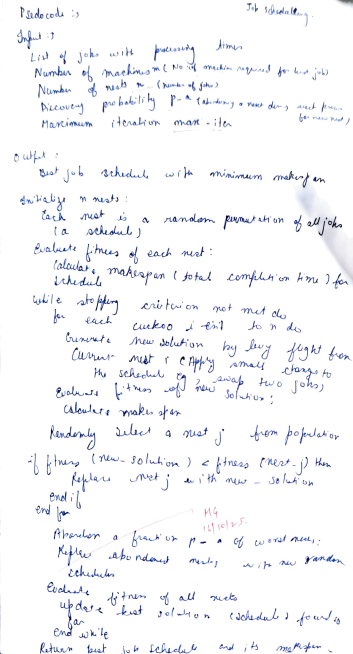 Job Scheduling
Psedocode :
Input :
List of jobs with processing times
Number of machines m (No of machine required for
Number of nests n - (number of jobs)
Discovery probability P-a (abandoning a nest
Maximum iteration max-iter
Output :
Best job schedule with minimum makespan
Initialize n nests :
Each nest is a random permutation of all jobs
(a schedule)
Evaluate fitness of each nest :
Calculate makespan (total completion time) for
schedule
while stopping criterion not met do
for each cuckoo i in 1 to n do
Generate new solution by levy flight from
Current nest i (Apply small changes to
the schedule eg, swap two jobs)
Evaluate fitness of new solution :
Calculate makespan
Randomly Select a nest j from population
if fitness (new-solution) < fitness (nest-j) then
Replace nest j with new-solution
end if
end for
Abandon a fraction p-a of worst nests:
Replace abandoned nests, with new random
schedules
Evaluate fitness of all nests
update best solution (schedule) found so
far
end while
Return best job schedule and its makespan.